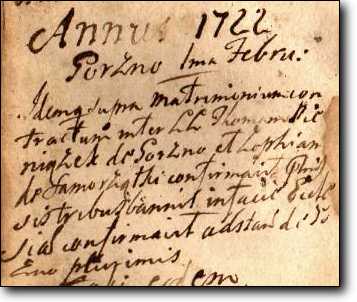 Annus 1722
Gorzno 1ma Febru:
Idem supra matrimonium con
tractum inter LL Thomam Pie
niążek de Gorzno et Zophiam
de Samorząthi confirmavit
tribus bannis in facie Eccle
siae confirmavit adstan de
plurimis
eodem